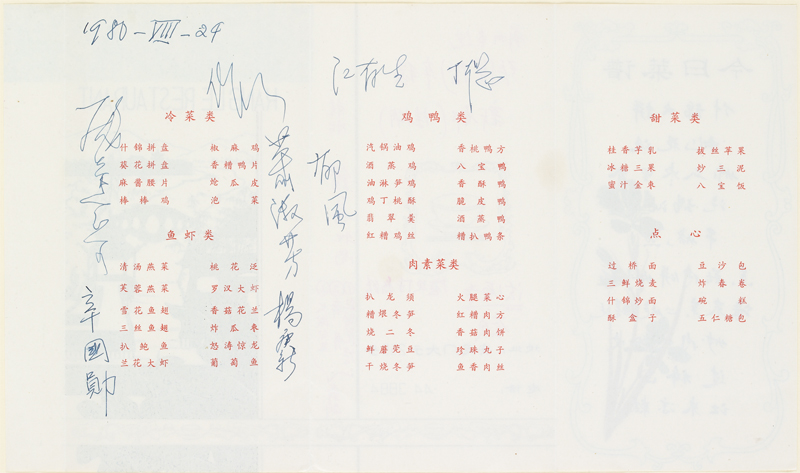 1980-VIII-24
江有生 丁聪
柳風
蕭淑芳 楊
辛國勛
冷菜类
什锦拼盘 椒麻鸡
葵花拼盘 香糟鸭片
麻酱腰片 炝瓜皮
棒棒鸡 泡菜
鱼虾类
清汤燕菜 桃花泛
芙蓉燕菜 罗汉大虾
雪花鱼翅 香菇花兰
三丝鱼翅 炸瓜枣
扒鲍鱼 怒涛惊龙
兰花大虾 葡萄鱼
鸡鸭类
汽锅油鸡 香桃鸭方
酒蒸鸡 八宝鸭
油淋笋鸡 香酥鸭
鸡丁桃酥 脆皮鸭
翡翠羹 酒蒸鸭
红糟鸡丝 糟扒鸭条
肉素菜类
扒龙须 火腿菜心
糟煨冬笋 红糟肉方
烧二冬 香菇肉饼
鲜蘑莞豆 珍珠丸子
干烧冬笋 鱼香肉丝
甜菜类
桂香芋乳 拔丝苹果
冰糖三果 炒三泥
蜜汁金枣 八宝饭
点心
过桥面 豆沙包
三鲜烧麦 炸春卷
什锦炒面 碗糕
酥盒子 五仁糖包